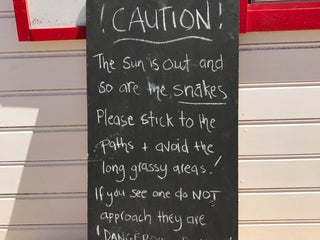 ! CAUTION !
The Sun is out and
so are the snakes
Please stick to the
paths + avoid the
long grassy areas!
If you see one do NOT
approach they are
! DANGEROUS